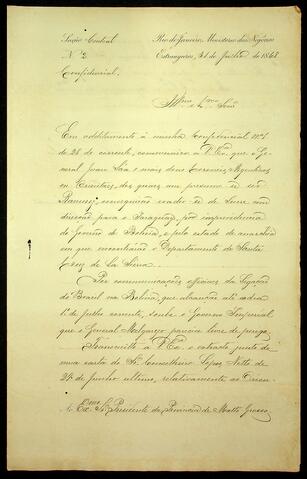 Seção Central
Nº 2
Confidencial.
Rio de Janeiro, Ministerio dos Negocios
Estrangeiros, 31 de Julho de 1868
Illmo e Exmo Senr
Em additamento á minha Confidencial Nº 1
de 28 do corrente, communico a V. Exª que o Ge-
neral Juan Sáa e mais tres Coroneis Argentinos
ou Orientaes, dos quaes um presumo ser
de Sucre com
direcção para o Paraguay, por imprevidencia
do Governo de Bolivia, e pelo estado de anarchia
em que encontrára o Departamento de Santa
Cruz de La Sierra.
Por communicações officiaes da Legação
do Brasil na Bolivia, que alcanção até o dia
1º de Julho corrente, soube o Governo Imperial
que o General Melgarejo parecia livre de perigo.
Transmitto a V. Exª o extracto junto de
uma carta do Sr. Conselheiro Lopes Netto de
24 de Junho ultimo, relativamente ao
Ao Exmo Sr. Presidente da Provincia de Matto Grosso